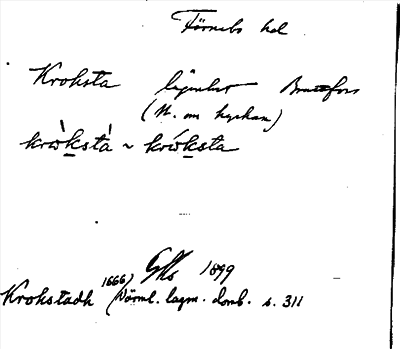 Färnebo hd
Kroksta lägenhet Brattfors
(N. om kyrkan)
krὼkstà ~ krώksta
1899
Krokstadh 1666 (Värml. lagm. domb. s. 311